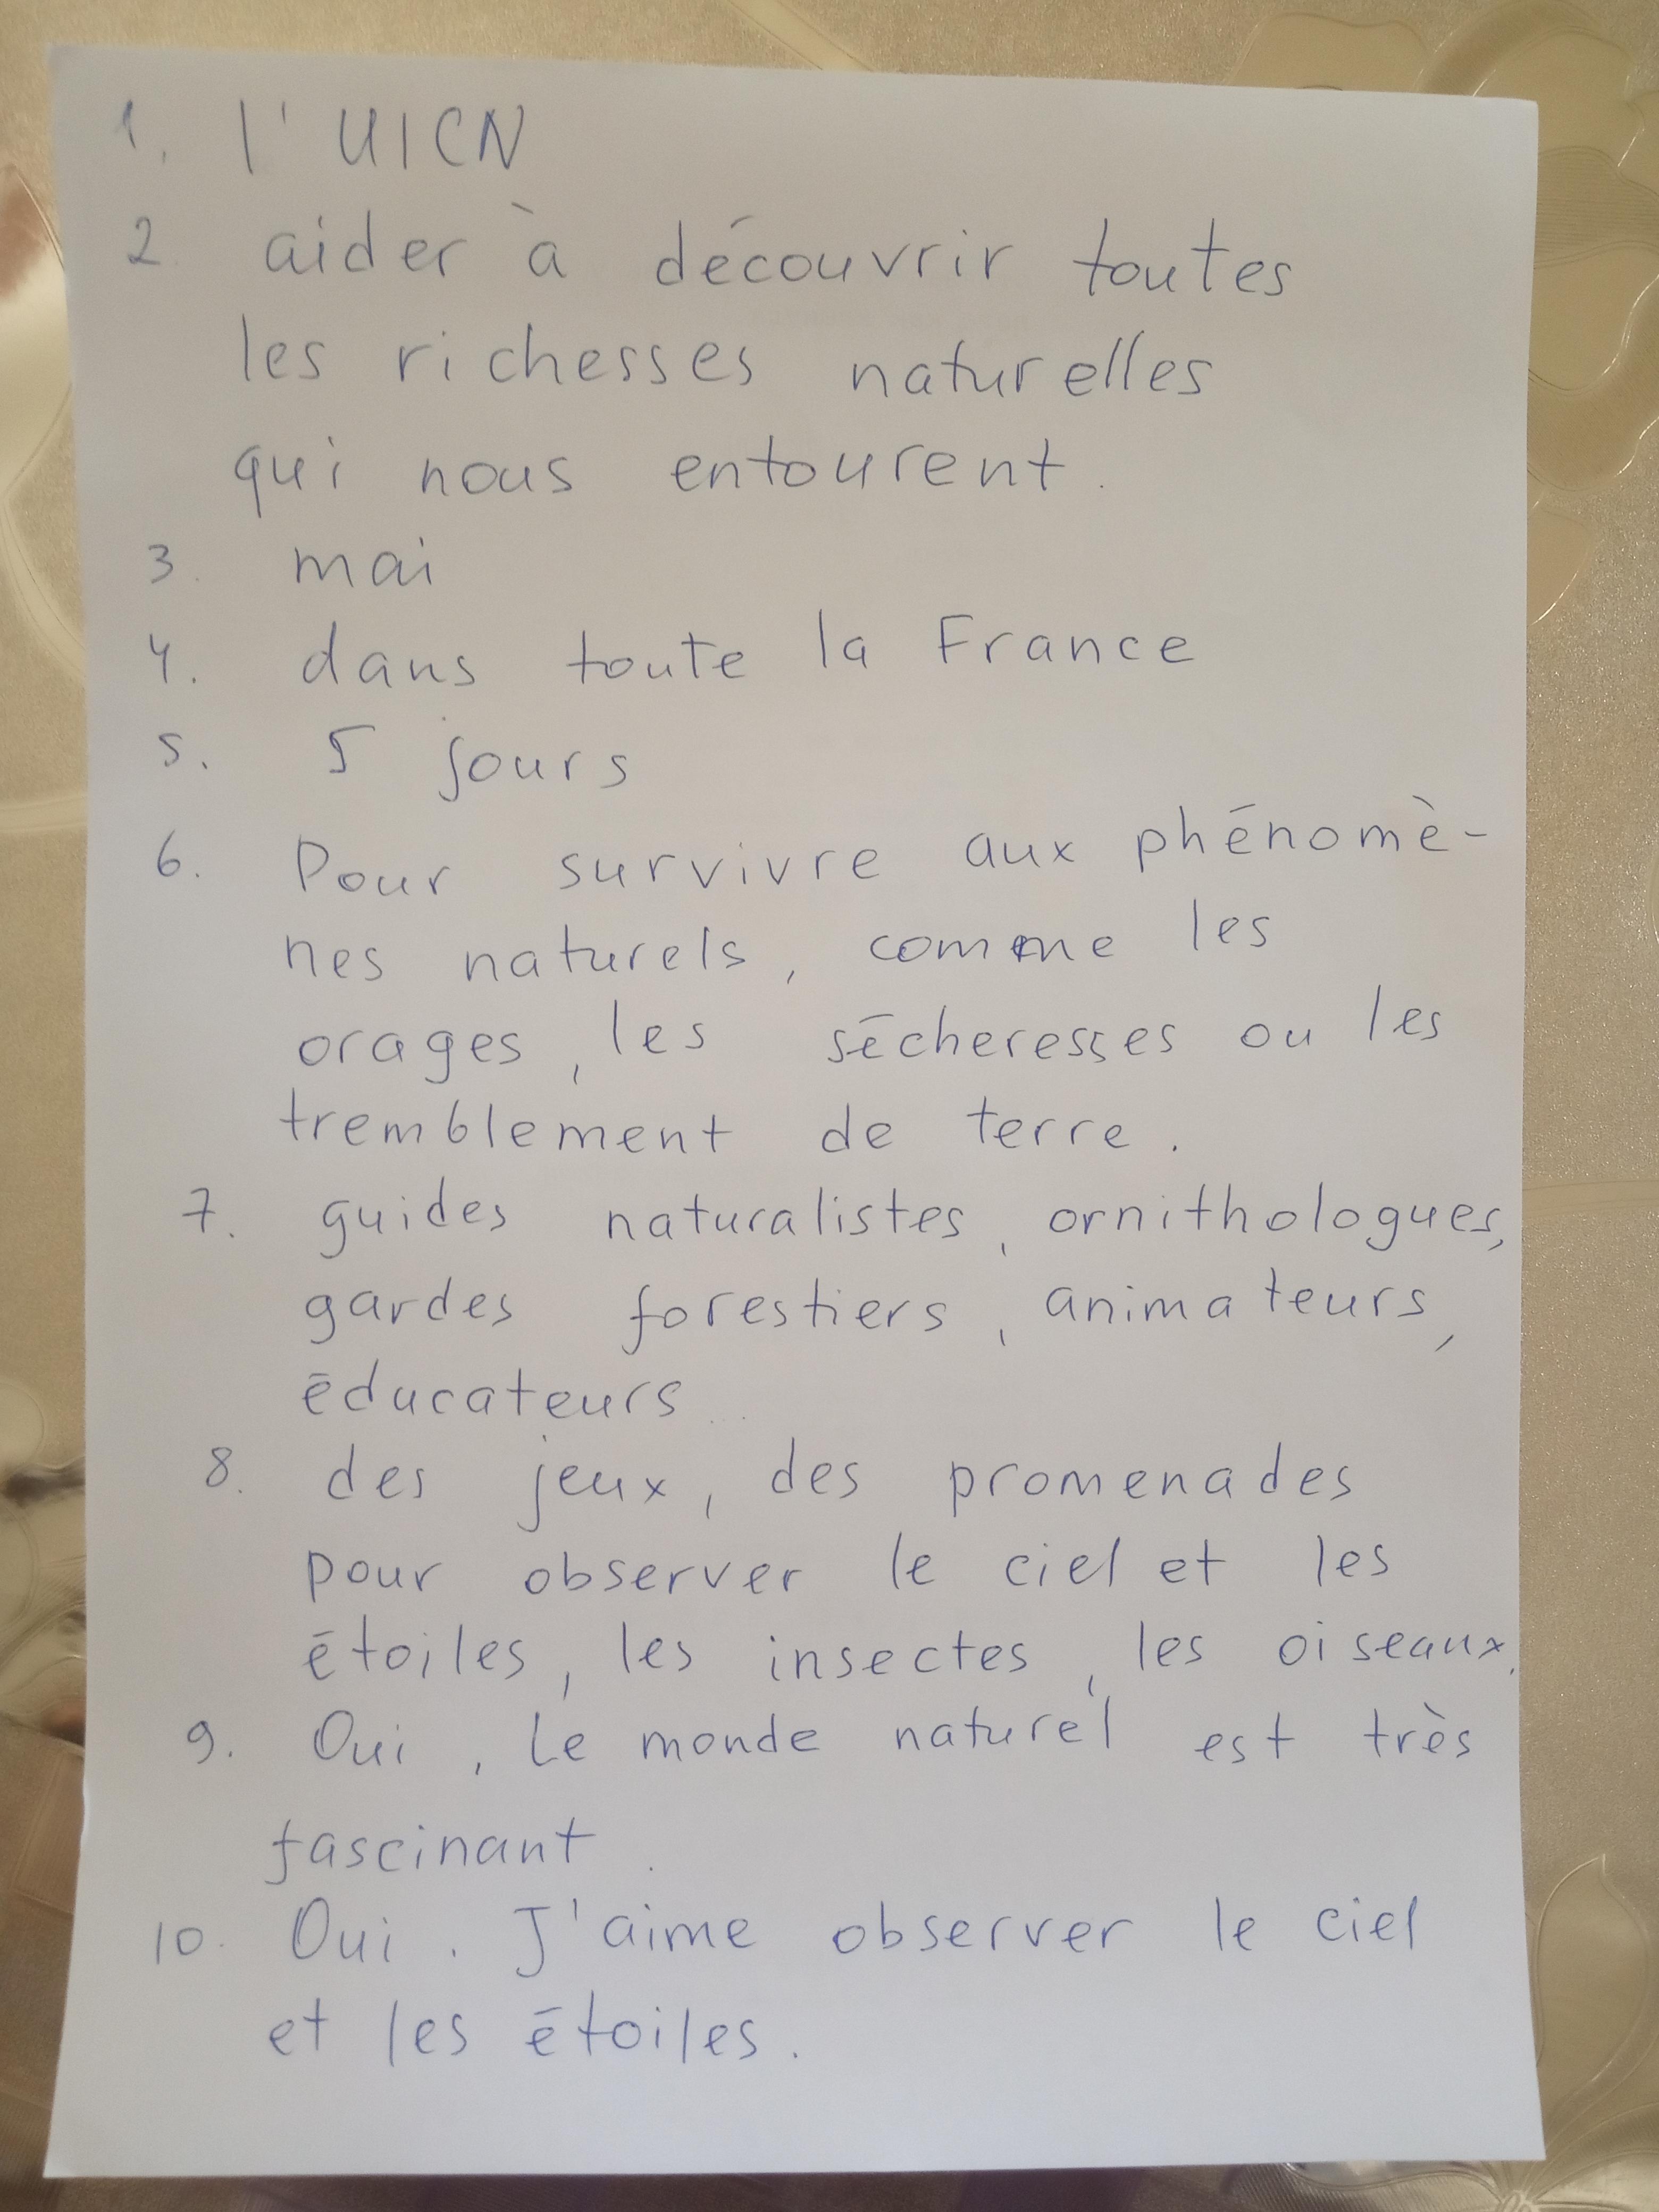 1. l'UICN
2. aider à découvrir toutes
les richesses naturelles
qui nous entourent.
3. mai
4. dans toute la France
5. 5 jours
6. Pour survivre aux phénomè-
nes naturels, comme les
orages, les sécheresses ou les
tremblement de terre.
7. guides naturalistes, ornithologues,
gardes forestiers, animateurs,
éducateurs...
8. des jeux, des promenades
pour observer le ciel et les
étoiles, les insectes, les oiseaux.
9. Oui, Le monde naturel est très
fascinant.
10. Oui. J'aime observer le ciel
et les étoiles.